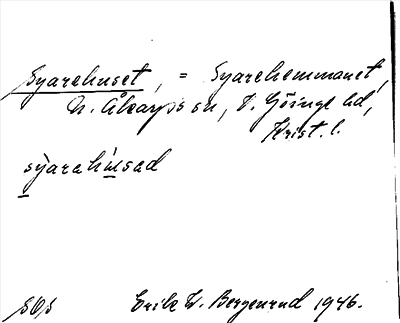 Syarehuset, = Syarehemmanet,
N. Åkarps sn, V. Göinge hd,
Krist. l.
sỳarahùsad
SOS Erik W. Bergenrud 1946.